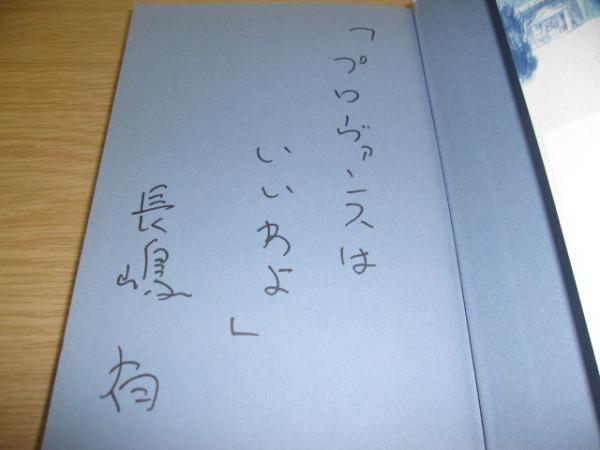 「プロヴァンスは
いいわよ」
長嶋有